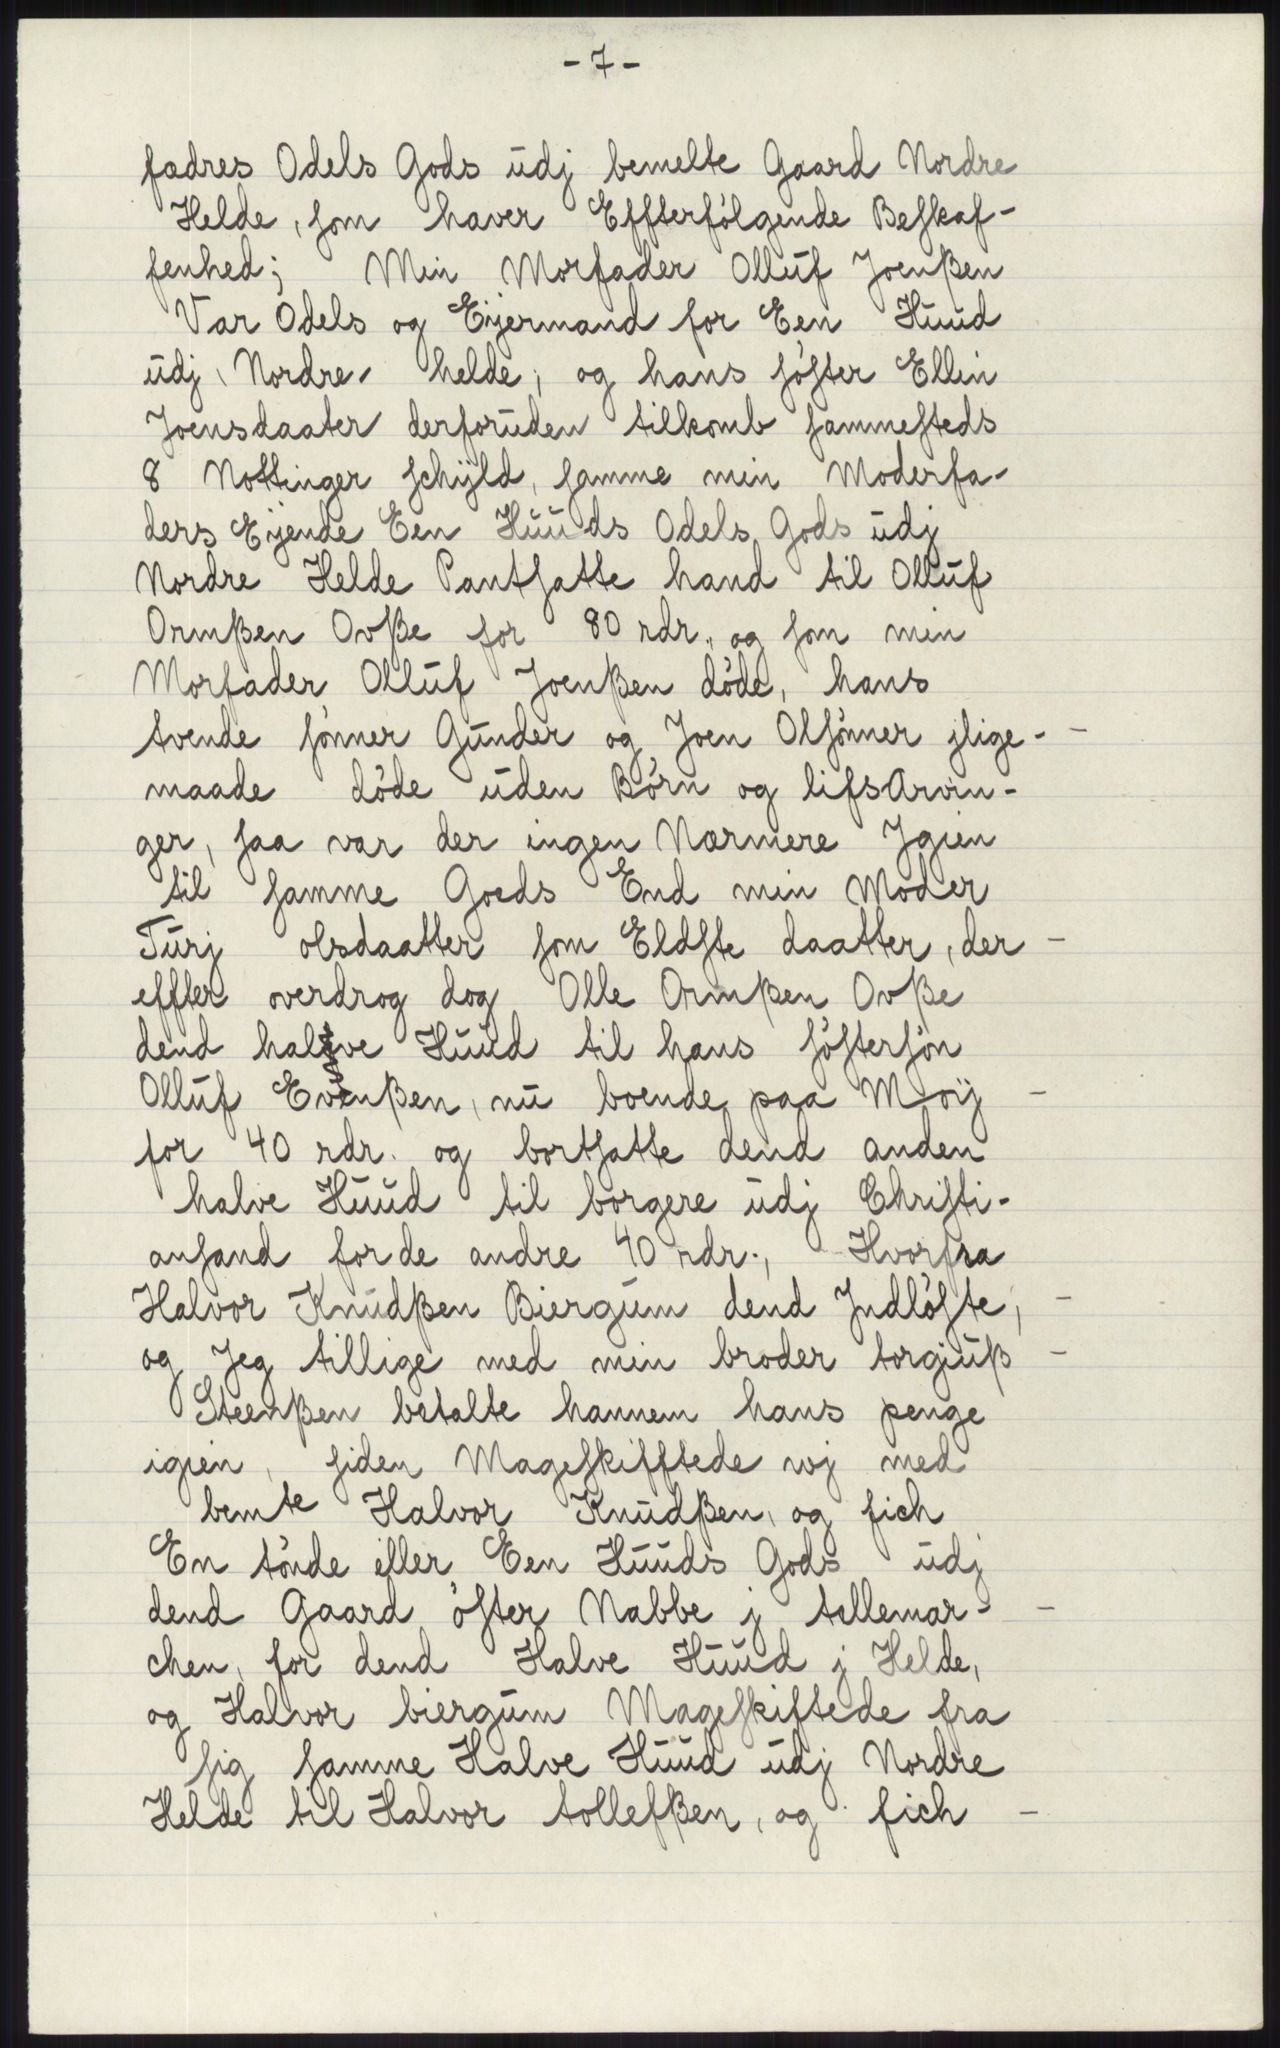 - 7 -
fædres Odels Gods udj bemelte Gaard Nordre
Helde, som haver Effterfølgende Beskaf-
fenhed; Min Morfader Olluf Joenßen
Var Odels og Eÿermand for Een Huud
udj Nordre helde, og hans søster Ellin
Joensdaater derforuden tilkomb sammesteds
8 Nottinger schÿld, samme min Moderfa-
ders Eÿende Een Huuds Odels Gods udj
Nordre Helde Pantsatte hand til Olluf
Ormßen Ovße for 80 rdr. og som min
Morfader Olluf Joenßen døde, hans
tvende sønner Gunder og Joen Olsønner jlige- -
maade døde uden Børn og lifsArvin-
ger, saa var der ingen Nærmere Jgien
til samme Goeds End min Moder
Turj olsdaatter som Eldste daatter, der -
effter overdrog dog Olle Ormßen Ovße
dend halve Huud til hans søstersøn
Olluf Evenßen, nu boende paa Moÿ -
for 40 rdr. og bortsatte dend anden
halve Huud til borgere udj Christi-
ansand for de andre 40 rdr., Hvorfra
Halvor Knudßen Biergum dend Jndløste, -
og Jeg tillige med min broder torgiuß -
Steenßen betalte hannem hans penge
igien, siden Mageskifftede wj med
bemte Halvor Knudßen, og fich
En tønde eller Een Huuds Gods udj
dend Gaard øster Nabbe j tellemar- -
chen, for dend Halve Huud j Helde,
og Halvor biergum Mageskiftede fra
sig samme Halve Huud udj Nordre
Helde til Halvor tollefßen, og fich -